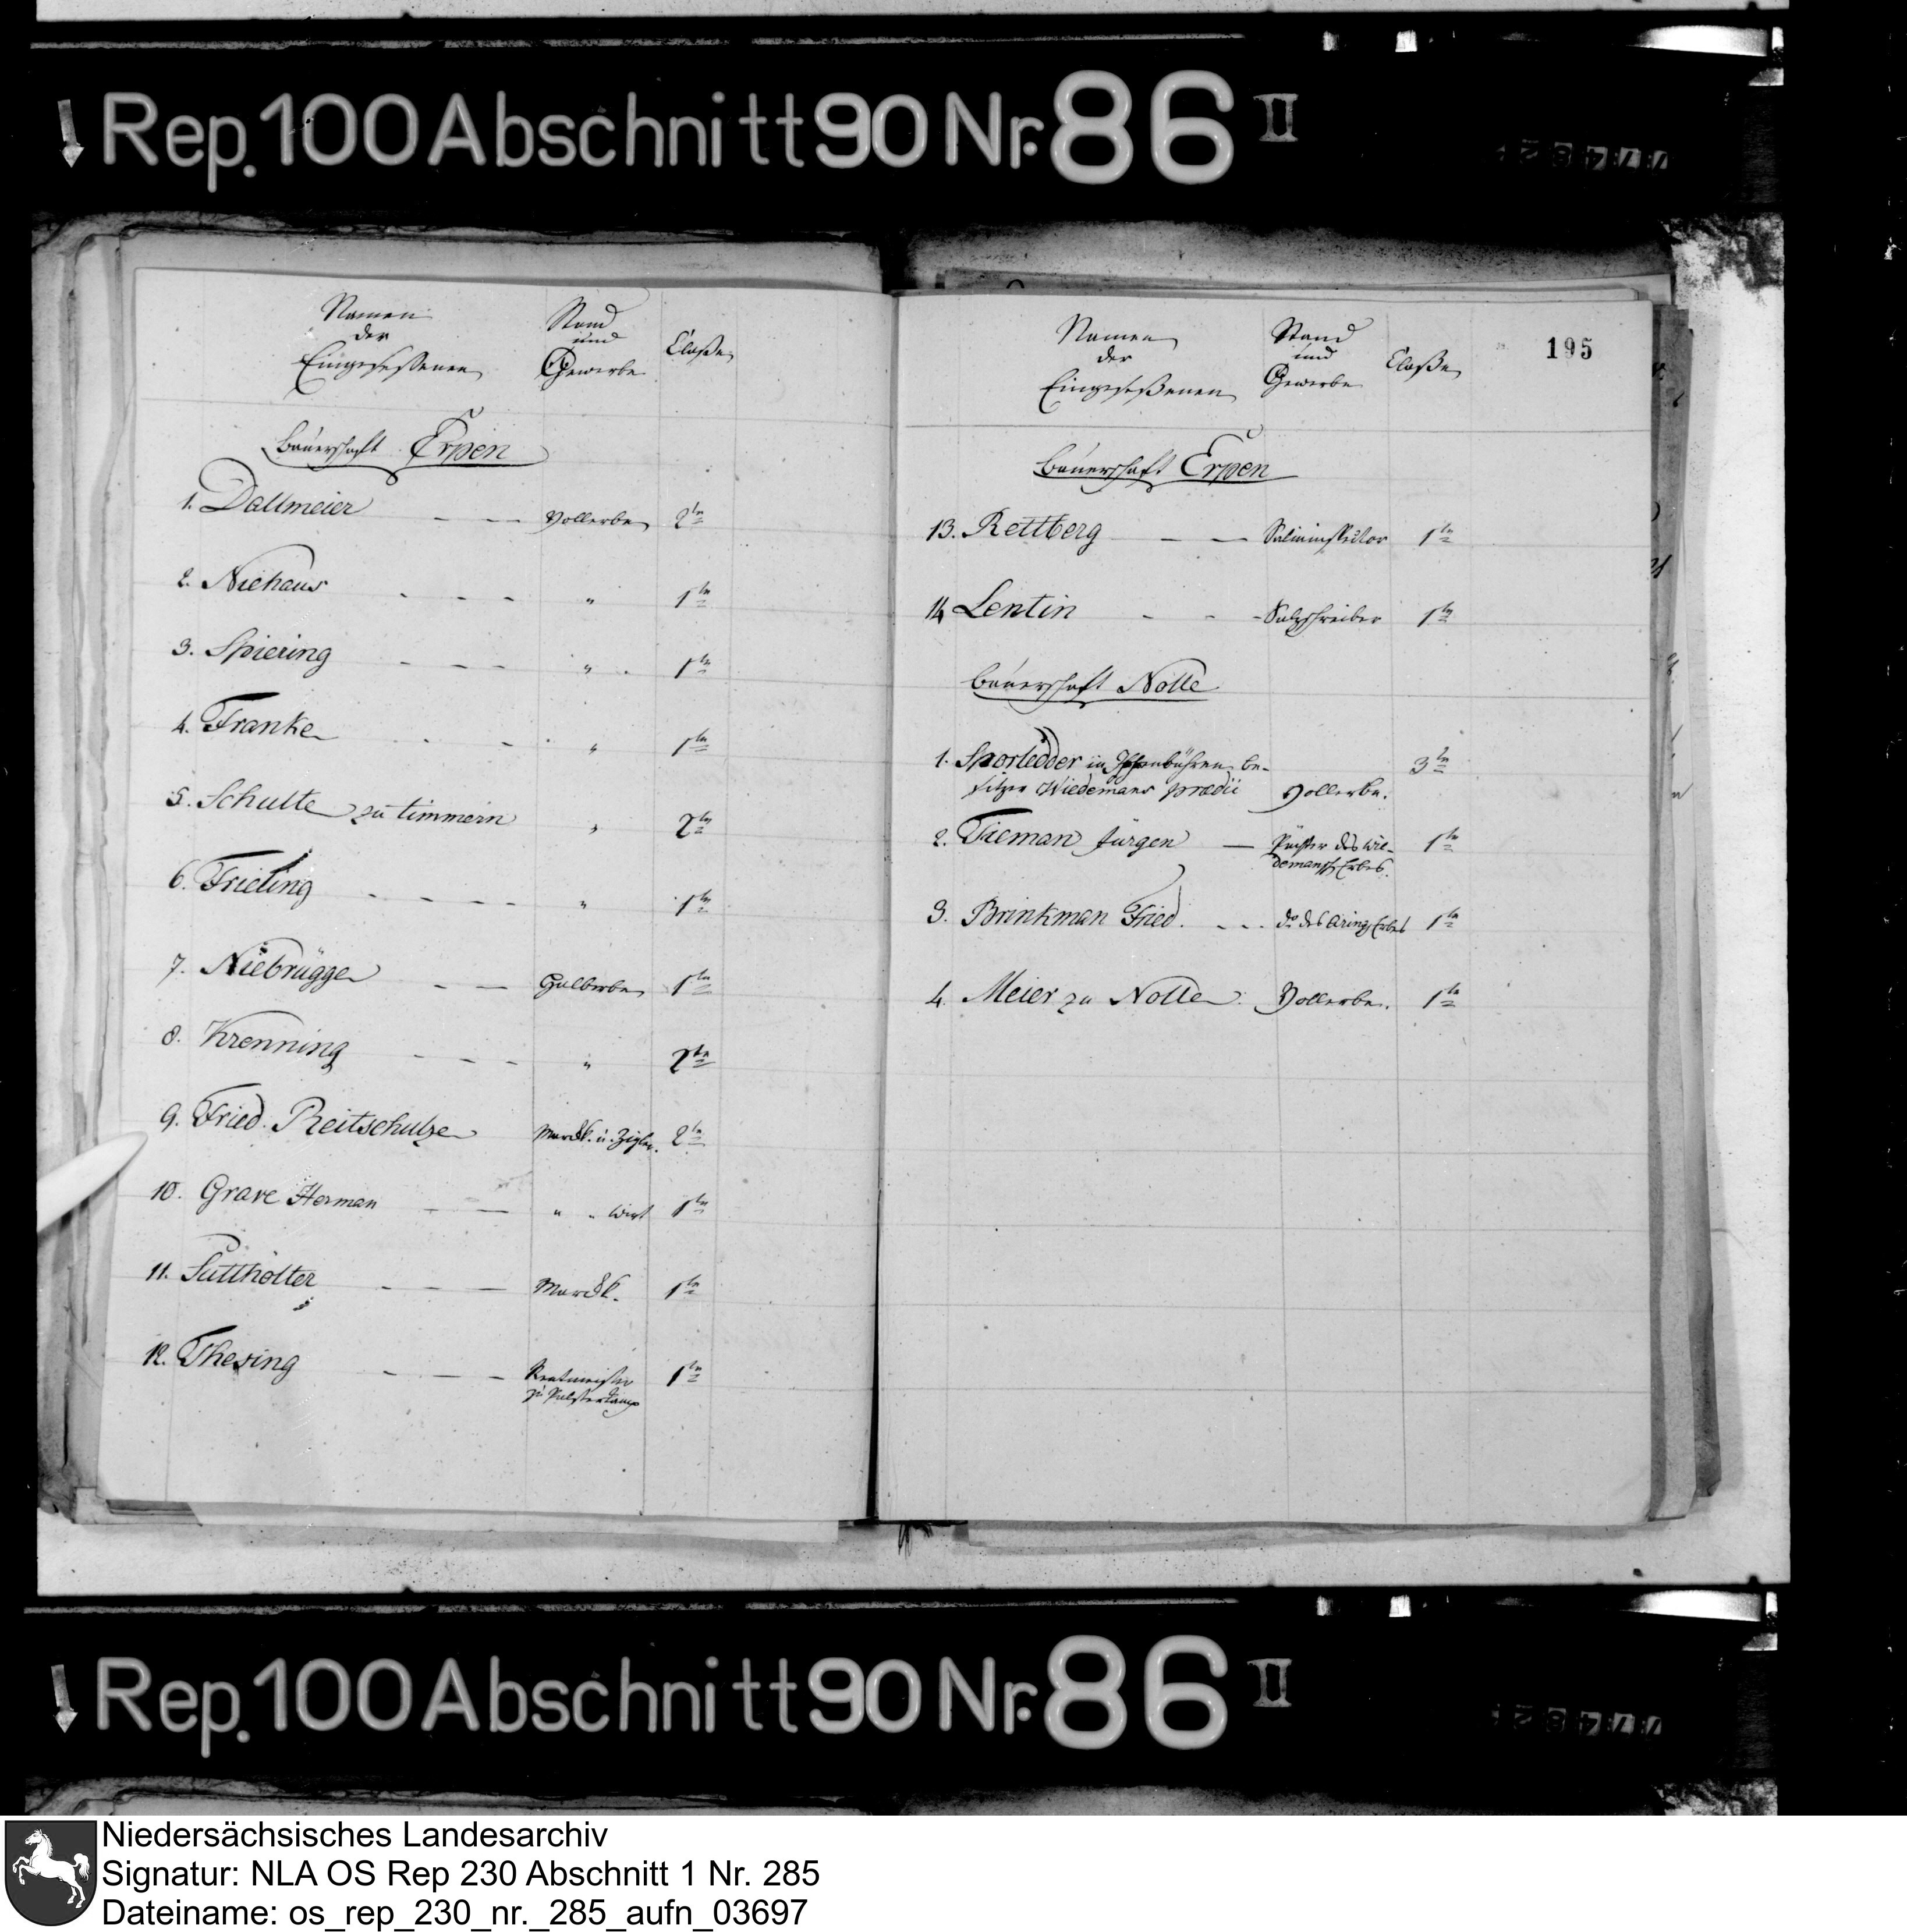 Rep. 100 Abschnitt 90 Nr. 86 II
Namen
der
Eingesessenen
Stand
und
Gewerbe
Claße
Bauerschaft Erpen
1. Dallmeier - - - Vollerbe 2te
2. Niehaus - - - " 1te
3. Spiering - - - " 1te
4. Franke - - - " 1te
5. Schulte zu timmern " 2te
6. Frieling - - - " 1te
7. Niebrügge - - Halberbe 1te
8. Krenning - - - " 2te
9. Fried. Reitschulze Markk. u. Zigler. 2te
10. Grave Herman - - " " Wirt 1te
11. Sutthölter - - - Markk. 1te
12. Thesing - - - Rentmeister 1te
zu Palsterkamp
195
Namen
der
Eingeseßenen
Stand
und
Gewerbe
Claße
Bauerschaft Erpen
13. Rettberg - - Salininspector 1te
14 Lentin - - - Salzschreiber 1te
Bauerschaft Nolle
1. Sporledder in Ibbenbühren be- 3te
sitzer Wiedemans praedii Vollerbe.
2. Tieman Jürgen - Pächter des Wie- 1te
demansch Erbes.
3. Brinkman Fried. - - - do des Aring Erbes 1te
4. Meier zu Nolle. Vollerbe. 1te
Rep. 100 Abschnitt 90 Nr. 86 II
Niedersächsisches Landesarchiv
Signatur: NLA OS Rep 230 Abschnitt 1 Nr. 285
Dateiname: os_rep_230_nr._285_aufn_03697